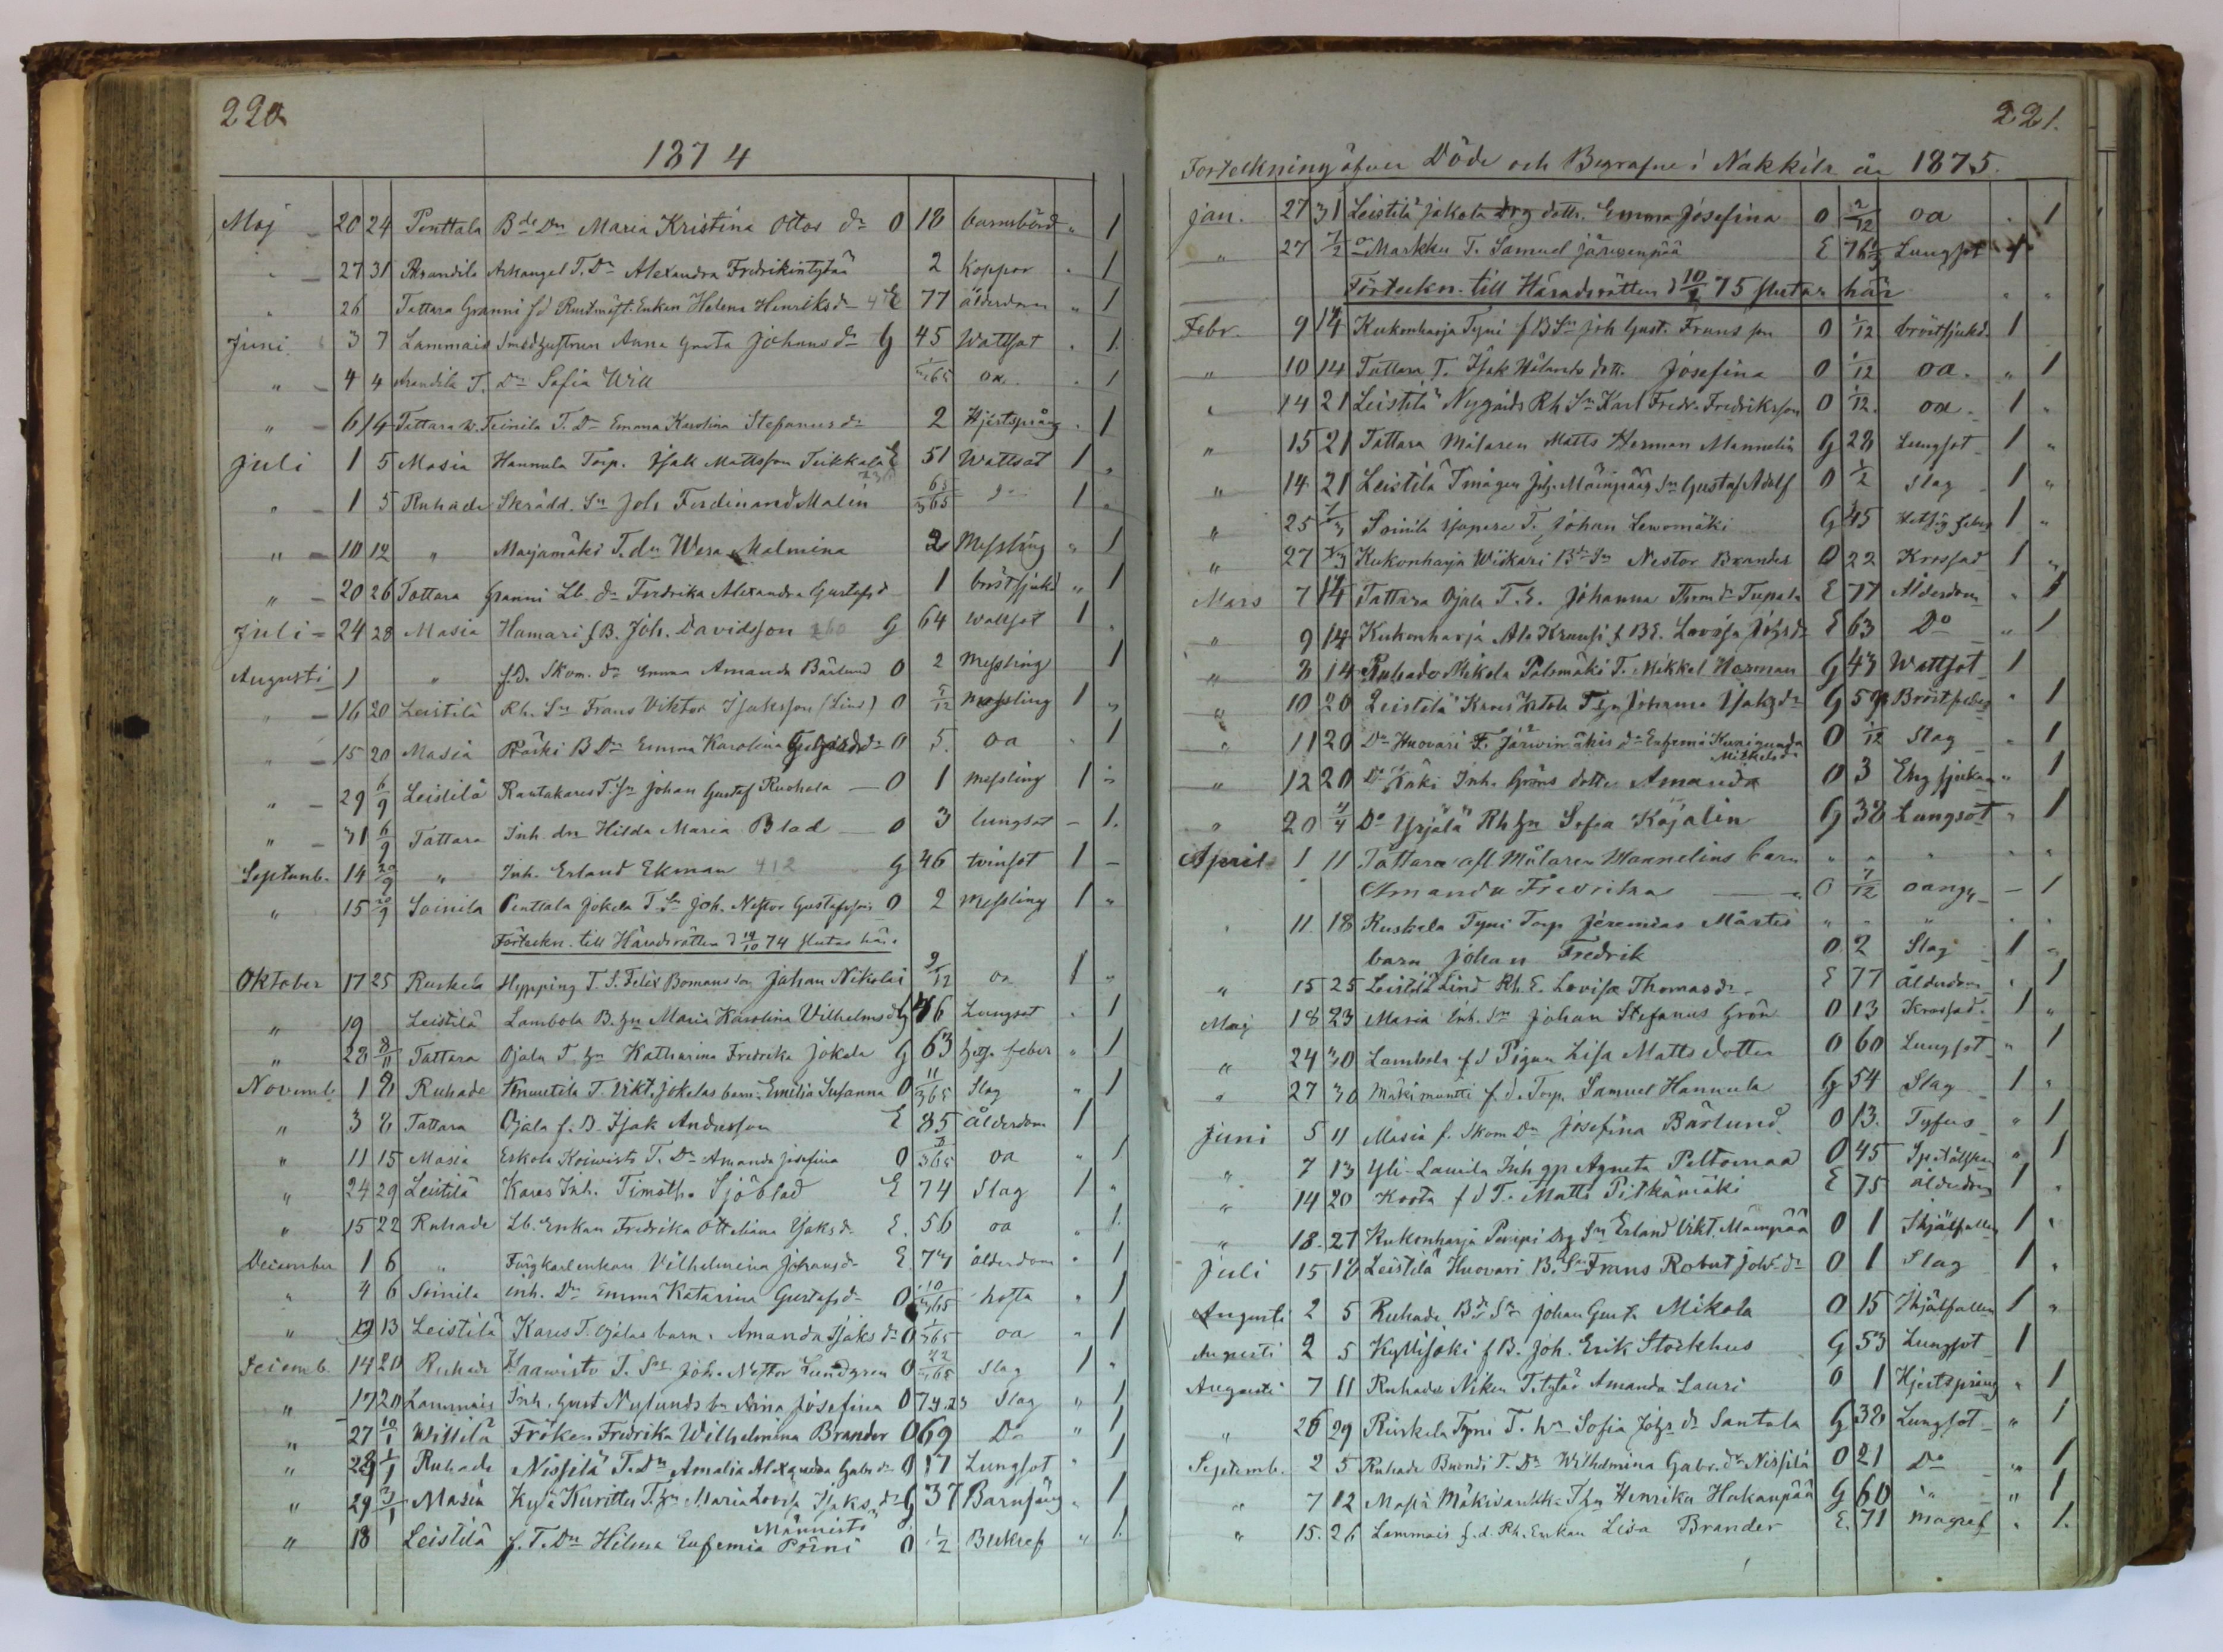 220
1874
Maj 20 24 Penttala Bde Dn Maria Kristina Ottos dr O 18 barnsbörd " 1
" 27 31 Arkangel T. Dr Alexandra Fredrikintytär 2 Koppor " 1
" 26 Tattara Granni fd Rustmäst. Enkan Helena Henriksdr E 77 ålderdom " 1
Juni 3 7 Lammais Smedhustrun Anna Greta Johansdr G 45 Wattsot " 1
" 4 4 T. Dr Sofia Will 1/365 oa " 1
" 6 14 Tattara w. Teinilä T. Dr Emma Karolina Stefanusdr 2 Hjertsprång " 1
Juli 1 5 Masia Hannula Torp. Isak Mattsson Teikkala E 51 Wattsot 1 "
" 1 5 Ruhade Skrädd. Sn Joh Ferdinand Malin 1 "
" 10 12 " Marjamäki T. dr Wera Malmina 2 Messling " 1
" 20 26 Tattara Granni Lb. dr Fredrika Alexandra Gustafsd 1 bröstsjukd " 1
Juli 24 28 Masia Hamari f B. Joh. Davidsson 260 G 64 wattsot 1 "
Augusti 1 " f.d. Skom. dr Emma Amanda Bärlund O 2 Messling 1
" 16 20 Leistilä Rh. Sn Frans Viktor Isaksson (Lind) O 7/12 Messling 1 "
" 15 20 Masia B Dr Emma Karolina O 5 oa " 1
" 29 6/9 Leistilä Rautakares T. Sn Johan Gustaf Ruohola O 1 messling 1 "
" 31 6/9 Tattara Inh. dr Hilda Maria Blad O 3 lungsot 1.
Septemb. 14 20/9 " Inh. Erland Ekman 412 G 46 tvinsot 1 -
" 15 20/9 Soinila Penttala Jokela T. Sn Joh. Nestor Gustafsson O 2 messling 1 "
Förteckn. till Häradsrätten d 19/10 74 slutas här.
Oktober 17 25 Ruskela Hypping T. S. Felix Bomans son Johan Nikolai 9/12 oa 1 "
" 19 Leistilä Lambola B. hn Maria Karolina Vilhelmsd G 46 Lungsot " 1
" 28 8/11 Tattara Ojala T. hn Katharina Fredrika Jokela G 63 hets. feber " 1
Novemb. 1 8 Ruhade Knuutila T. Vikt. Jokelas barn. Emilia Susanna O 11/365 Slag " 1
" 3 8 Tattara Ojala f. B. Isak Andersson E 85 Ålderdom 1
" 11 15 Masia Eskola Koiwisto T. Dr Amanda Josefina O oa " 1
" 24 29 Leistilä Kares Inh. Timoth. Sjöblad E 74 Slag 1 "
" 15 22 Ruhade Lb. Enkan Fredrika Ottiliana Isaksd. E. 56 oa " 1.
December 1 6 " Färgkarlenkan Vilhelmina Johansdr E. ålderdom " 1
" 4 6 Soinila Inh. Dr Emma Katarina Gustafsdr O 10/365 hosta " 1
" 13 Leistilä Kares T. Ojalas barn. Amanda Isaks dr O 1/365 oa " 1
Decemb. 14 20 Ruhade T. Sn Joh. Nestor Lundgren O 22/365 slag 1 "
" 17 20 Lammais Inh. Gust Nylunds bn Aina Josefina O Slag " 1
" 27 10/1 Wissilä Fröken Fredrika Wilhelmina Brander O 69 Do " 1
" 28 1/1 Ruhade Nissilä T. dr Amalia Alexandra Gabr. dr O 17 Lungsot " 1
" 29 3/1 Masia Kylä Kurittu T. hn Maria Lovisa Isaks dr G 37 Barnsäng " 1
Männistö
" 18 Leistilä f. T. Dr Hilma Eufemia Pörni O 1/2 Bukref " 1.
221.
Förteckning öfver Döde och Begrafne i Nakkila år 1875.
Jan. 27 31 Leistilä Jakola Drg dottr. Emma Josefina O 2/12 oa " 1
" 27 7/2 " Markku T. Samuel Järwenpää E 76 Lungsot 1
Förteckn. till Häradsrätten d 10/2 75 slutas här
Febr. 9 14 Kukonharja Tyni f B Sn Joh Gust. Frans son O 1/12 bröstsjukd. 1
" 10 14 Tattara T. Isak Wålands dott. Josefina O 1/12 oa. " 1
" 14 21 Leistilä Nygårds Rh Sn Karl Fredr. Fredriksson O 1/12 oa 1 "
" 15 21 Tattara Målaren Matts Herman Mannelin G 28 Lungsot 1 "
" 14 21 Leistilä Joh. Mäenpääs Sn Gustaf Adolf O 1/2 slag 1 "
" 25 7/3 Soinila T. Johan Lewomäki G 45 Hetsig feber 1 "
" 27 7/3 Kukonharja Wiikari Bde Sn Nestor Brander O 22 Krossad 1 "
Mars 7 14 Tattara Ojala T. E. Johanna Thom. dr Tupala E 77 Ålderdom " 1
" 9 14 Kukonharja Ala Krausi f BE. Lovisa Johsdr E 63 Do " 1
" 8 14 Ruhade Mikola Palomäki T. Mikkel Herman G 43 Wattsot 1
" 10 20 Leistilä Kares Ketola T hn Johanna Isaksdr G 59 Bröstfeber " 1
" 11 20 Do Huovari T. Järwinmäkis dr Eufemi Kunigunda Mikkelsdr O 2/12 Slag " 1
" 12 20 Do Käki Inh. Gröns dotter Amanda O 3 Eng. sjukan " 1
" 20 4/4 Do Yrjälä Rh hn Sofia Köjälin G 38 Lungsot " 1
April 1 11 Tattara afl. Målaren Mannelins barn " " " " "
Amanda Fredrika O 7/12 oangif. - 1
" 11 18 Ruskela Tyni Torp Jeremias Mårtes " " " " "
barn Johan Fredrik O 2 Slag 1 "
" 15 25 Leistilä Lind Rh. E. Lovisa Thomasdr E 77 ålderdom " 1
Maj 18 23 Masia Inh. Sn Johan Stefanus Grön O 13 Krossad. 1 "
" 24 30 Lambola f d Pigan Lisa Matts dotter O 60 Lungsot " 1
" 27 30 f. d. Torp. Samuel Hannula G 54 Slag 1 "
Juni 5 11 Masia f. Skom Dr Josefina Bärlund O 13. Tyfus " 1
" 7 13 Yli-Lauila Inh. gp Agneta Peltomaa O 45 Spetälskan " 1
" 14 20 Koota f d T. Matts Pitkämäki E 75 ålderdom 1 "
" 18 27 Kukonharja Drg Sn Erland Vikt. Mäenpää O 1 Ihjälfallen 1 "
Juli 15 18 Leistilä Huovari B. Sn Frans Robert Johs. dr O 1 Slag 1 "
Augusti 2 5 Ruhade Bd Sn Johan Gust. Mikola O 15 Ihjälfallen 1 "
Augusti 2 5 Kyllijoki f B. Joh. Erik Stockhus G 53 Lungsot 1
Augusti 7 11 Ruhade Niken T. tytär Amanda Lauri O 1 Hjertsprång " 1
" 26 29 Ruskela Tyni T. hn Sofia Johs dr Santala G 38 Lungsot " 1
Septemb. 2 5 Ruhade Buondi T. Dr Wilhelmina Gabr. dr Nissilä O 21 Do " 1
" 7 12 Masia T hn Henrika Hakanpää G 60 " " 1
" 15. 26 Lammais f. d. Rh. Enkan Lisa Brander E. 71 Magref " 1.